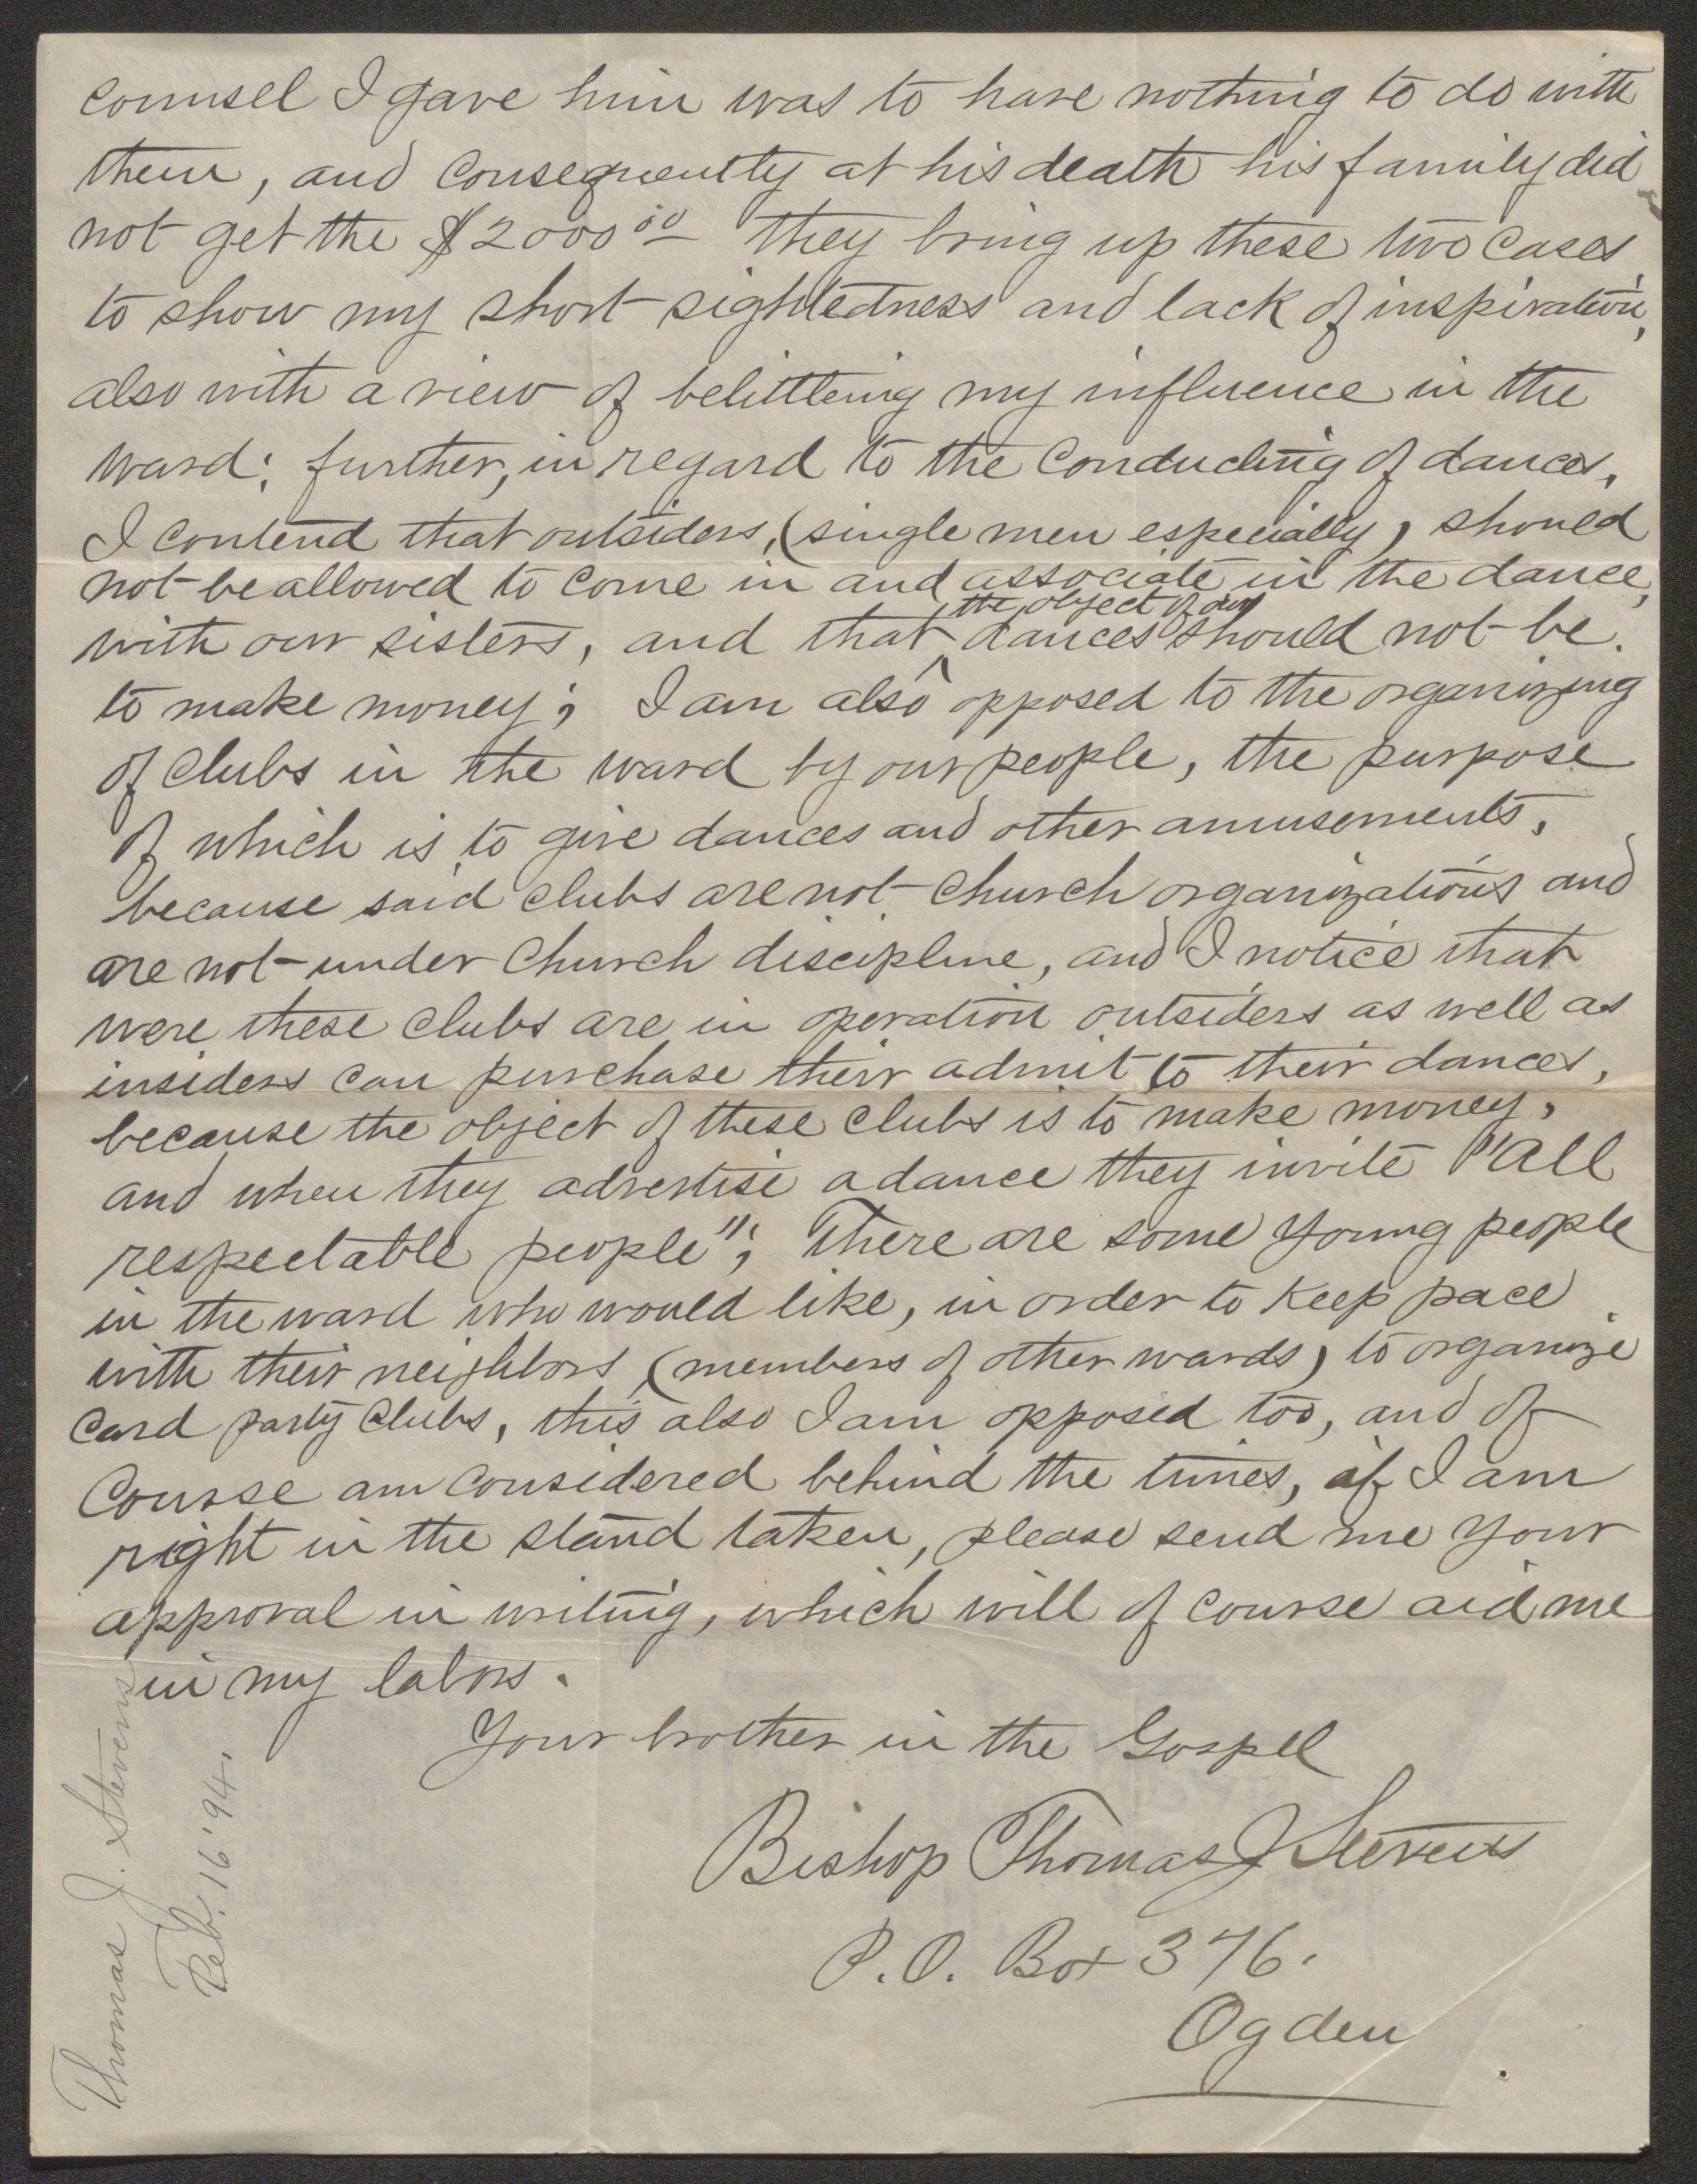 counsel I gave him was to have nothing to do with
them, and consequently at his death his family did
not get the $2000.00 they bring up these two cases
to show my short-sightedness and lack of inspiration,
also with a view of belittleing my influence in the
ward; further, in regard to the conducting of dances,
I contend that outsiders, (single men especially) should
not be allowed to come in and associate in the dance,
with our sisters, and that the object of our dances should not be
to make money; I am also opposed to the organizing
of clubs in the ward by our people, the purpose
of which is to give dances and other amusements,
because said clubs are not church organizations and
are not under Church discipline, and I notice that
were these clubs are in operation outsiders as well as
insiders can purchase their admit to their dances,
because the object of these clubs is to make money,
and when they advertise a dance they invite "All
respectable people"; There are some young people
in the ward who would like, in order to keep pace
with their neighbors, (members of other wards) to organize
card party clubs, this also I am opposed too, and of
course am considered behind the times, if I am
right in the stand taken, please send me your
approval in writing, which will of course aid me
in my labors.
Your brother in the Gospel
Bishop Thomas J Stevens
P.O. Box 376.
Ogden
Thomas J. Stevens
Feb. 16 '94.